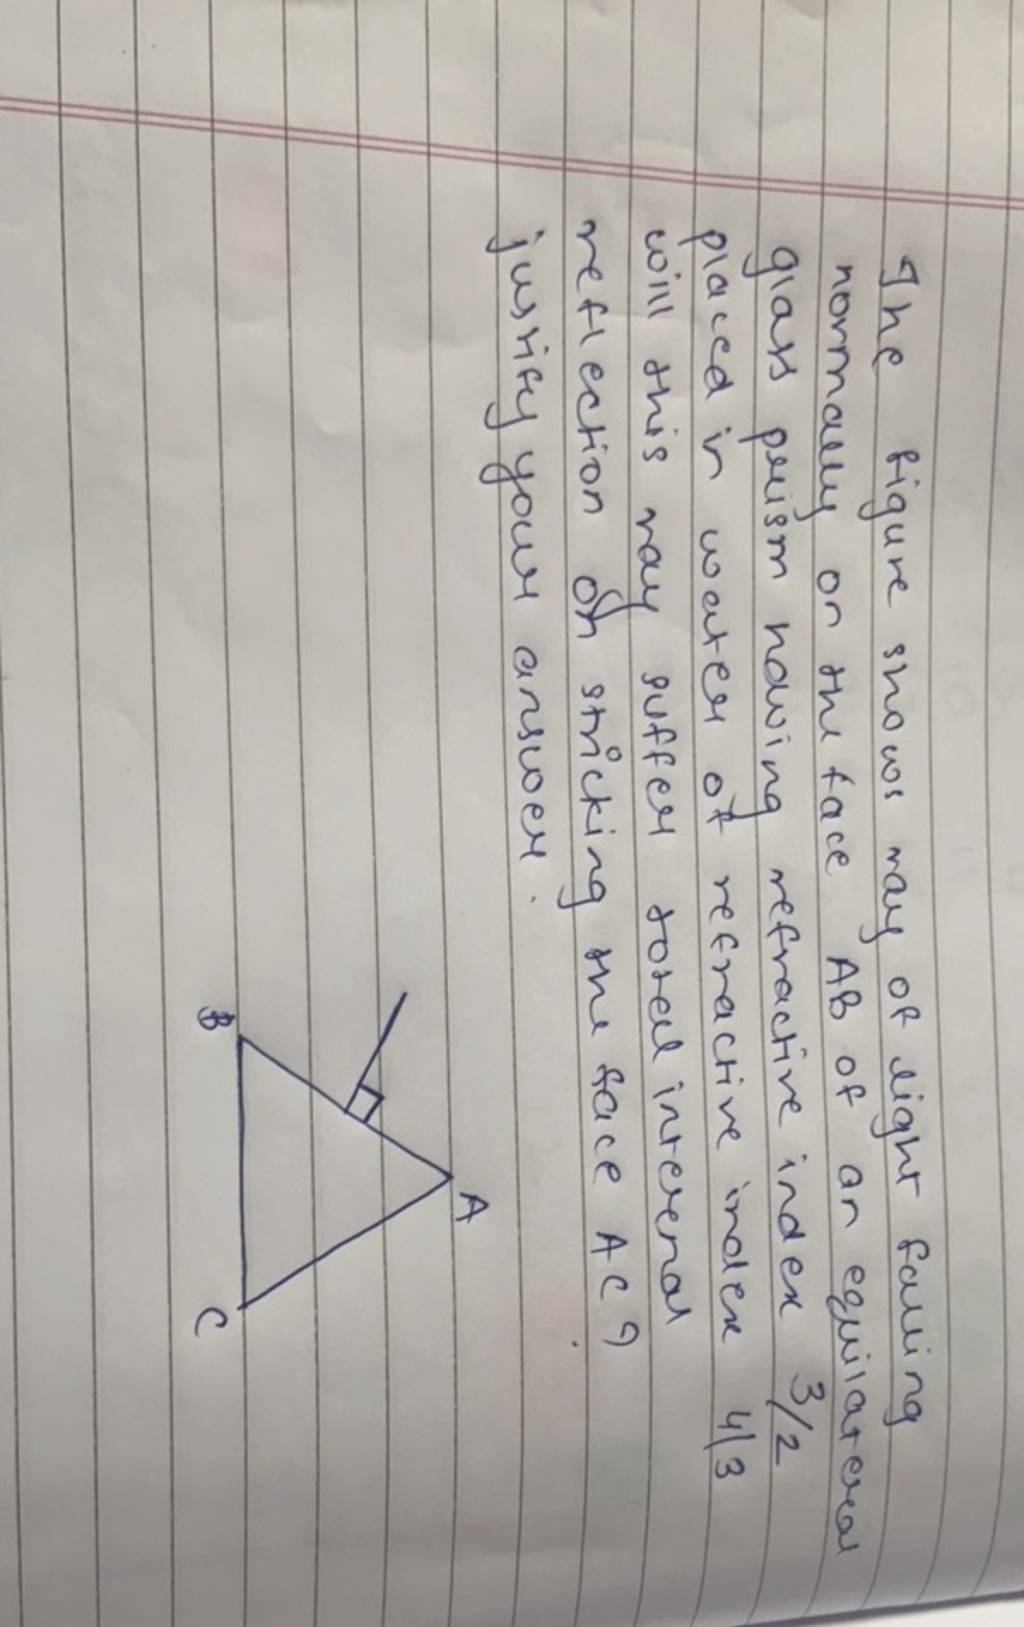 The figure shows ray of light falling
normally on the face AB of an equilateral
glass prism having refractive index 3/2
placed in water of refractive index 4/3
will this ray suffer total internal
reflection on stricking the face AC?
justify your answer.
A
B
C